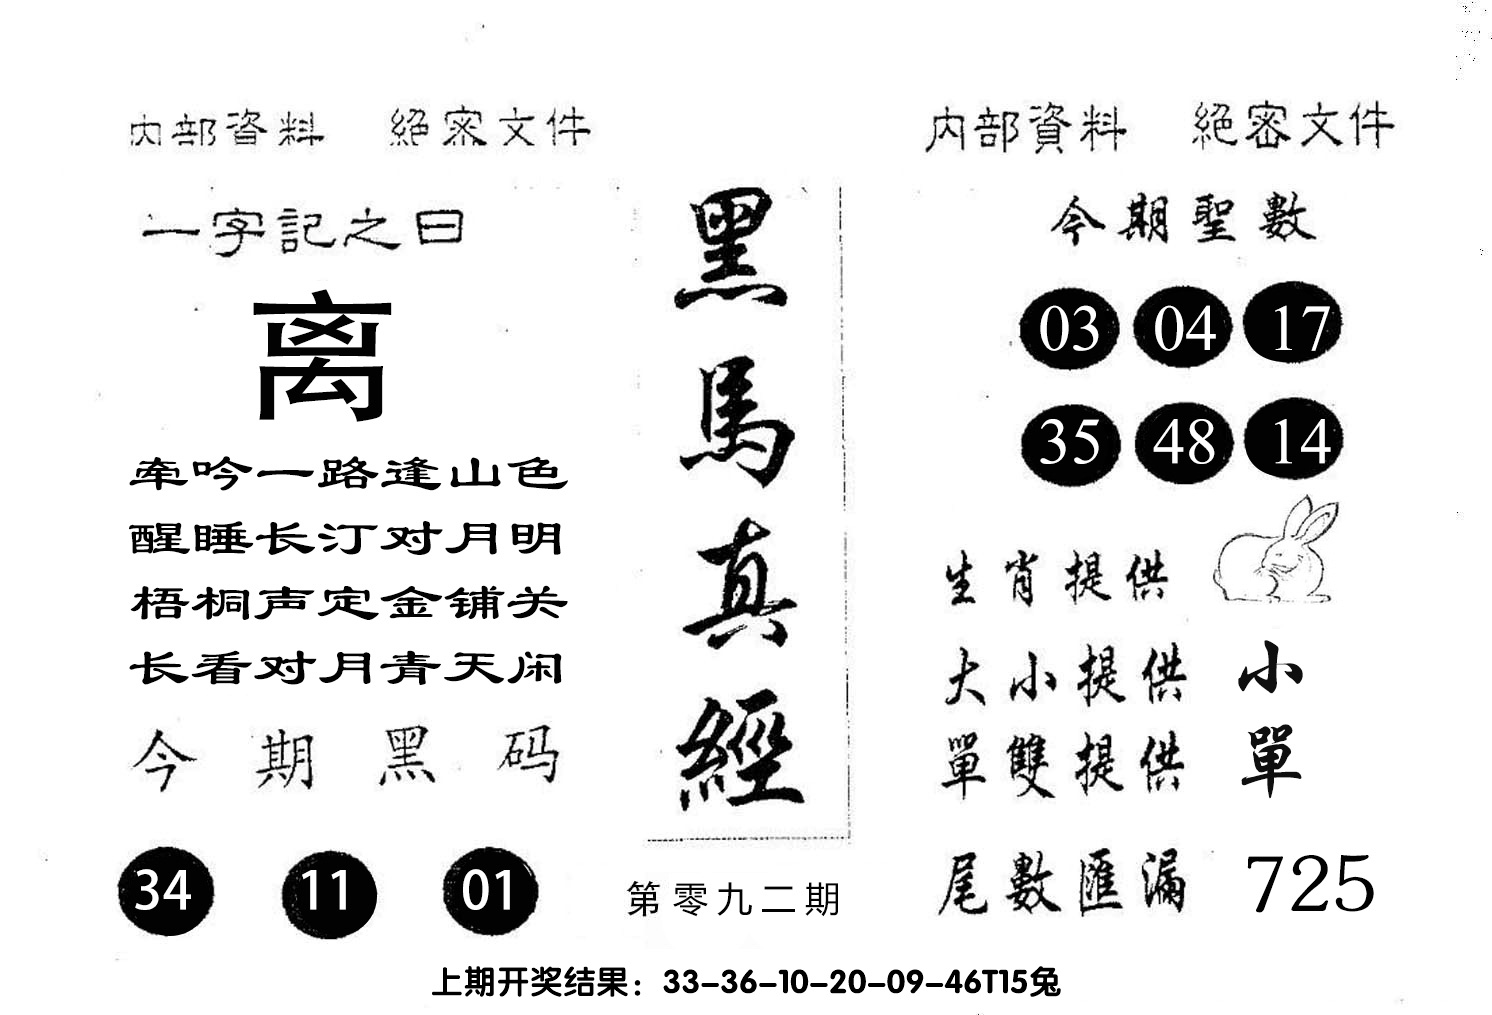 内部資料 絕密文件
一字記之曰
离
牵吟一路逢山色
醒睡长汀对月明
梧桐声定金铺关
长看对月青天闲
今期黑码
34 11 01
黑馬真經
第零九二期
内部資料 絕密文件
今期聖數
03 04 17
35 48 14
生肖提供
大小提供 小
單雙提供 單
尾數匯漏 725
上期开奖结果：33-36-10-20-09-46T15兔